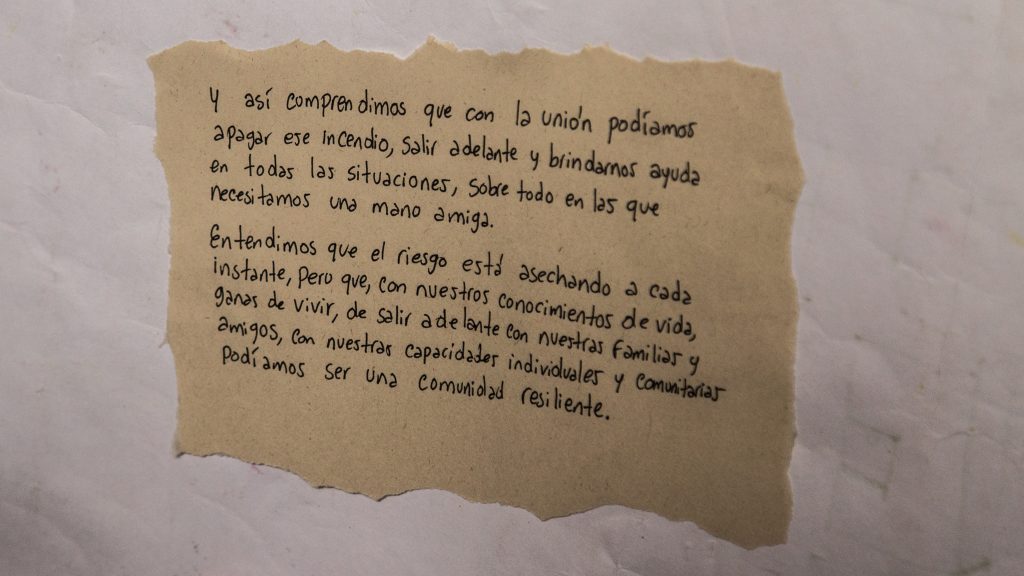 Y así comprendimos que con la unión podíamos
apagar ese incendio, salir adelante y brindarnos ayuda
en todas las situaciones, sobre todo en las que
necesitamos una mano amiga.
Entendimos que el riesgo está asechando a cada
instante, pero que, con nuestros conocimientos de vida,
ganas de vivir, de salir adelante con nuestras familias y
amigos, con nuestras capacidades individuales y comunitarias
podíamos ser una comunidad resiliente.